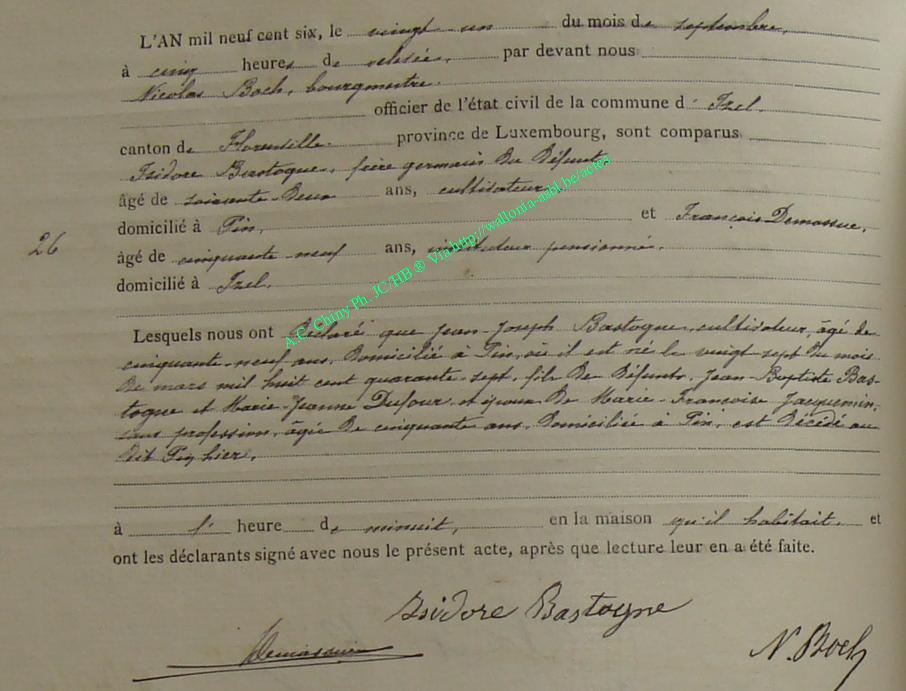 L'AN mil neuf cent six, le vingt un du mois de septembre,
à cinq heures de relevée, par devant nous
Nicolas Boch, bourgmestre.
officier de l'état civil de la commune d'Izel.
canton de Florenville. province de Luxembourg, sont comparus
Isidore Bastogne, frère germain du défunt,
âgé de soixante-deux ans, cultivateur,
domicilié à Pin, et François Demassue,
26
âgé de cinquante neuf ans, instituteur pensionné,
domicilié à Izel.
Lesquels nous ont déclaré que Jean-Joseph Bastogne, cultivateur, âgé de
cinquante-neuf ans, domicilié à Pin, où il est né le vingt sept du mois
de mars mil huit cent quarante-sept, fils de défunts Jean-Baptiste Bas-
togne et Marie-Jeanne Dufour, et époux de Marie-Françoise Jacquemin,
sans profession, âgée de cinquante ans, domiciliée à Pin, est décédé au
dit Pin hier,
à l' heure de minuit, en la maison qu'il habitait et
ont les déclarants signé avec nous le présent acte, après que lecture leur en a été faite.
Isidore Bastogne
N. Boch
A.C. Chiny Ph. JC/HB ® Via http://wallonia-asbl.be/actes